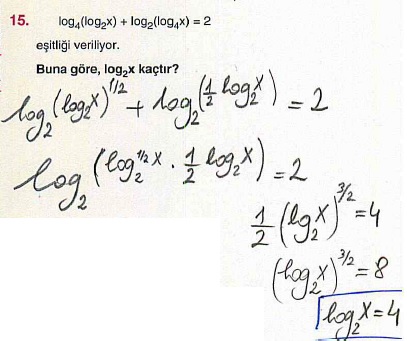 15. log₄(log₂x) + log₂(log₄x) = 2
eşitliği veriliyor.
Buna göre, log₂x kaçtır?
log₂(log₂x)^1/2 + log₂(1/2 log₂x) = 2
log₂(log₂^1/2 x · 1/2 log₂x) = 2
1/2 (lg₂x)^3/2 = 4
(log₂x)^3/2 = 8
log₂x = 4